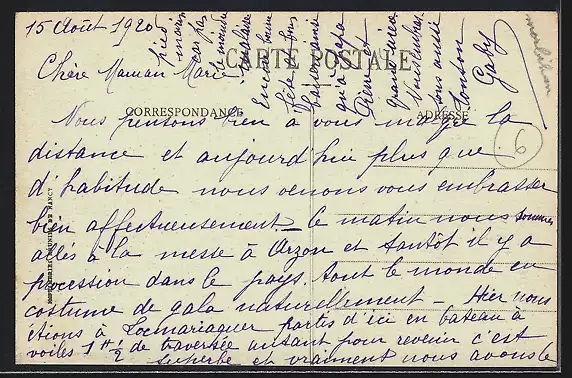 15 Août 1920
Chère Maman Marie
CARTE POSTALE
CORRESPONDANCE
ADRESSE
Nous pensons bien à vous malgré la
distance et aujourd'hui plus que
d'habitude nous venons vous embrasser
bien affectueusement _ le matin nous sommes
allés à la messe à Arzon et tantôt il y a
procession dans le pays. tout le monde en
costume de gala naturellement - Hier nous
étions à Locmariaquer partis d'ici en bateau à
voiles 1 H 1/2 de traversée autant pour revenir c'est
superbe et vraiment nous avons le
pied marin
car pas
le moindre
Encore bonne
fête
qu'à papa
Pierre et
sans oublier
Tonton
Gaby
Morbihan
6